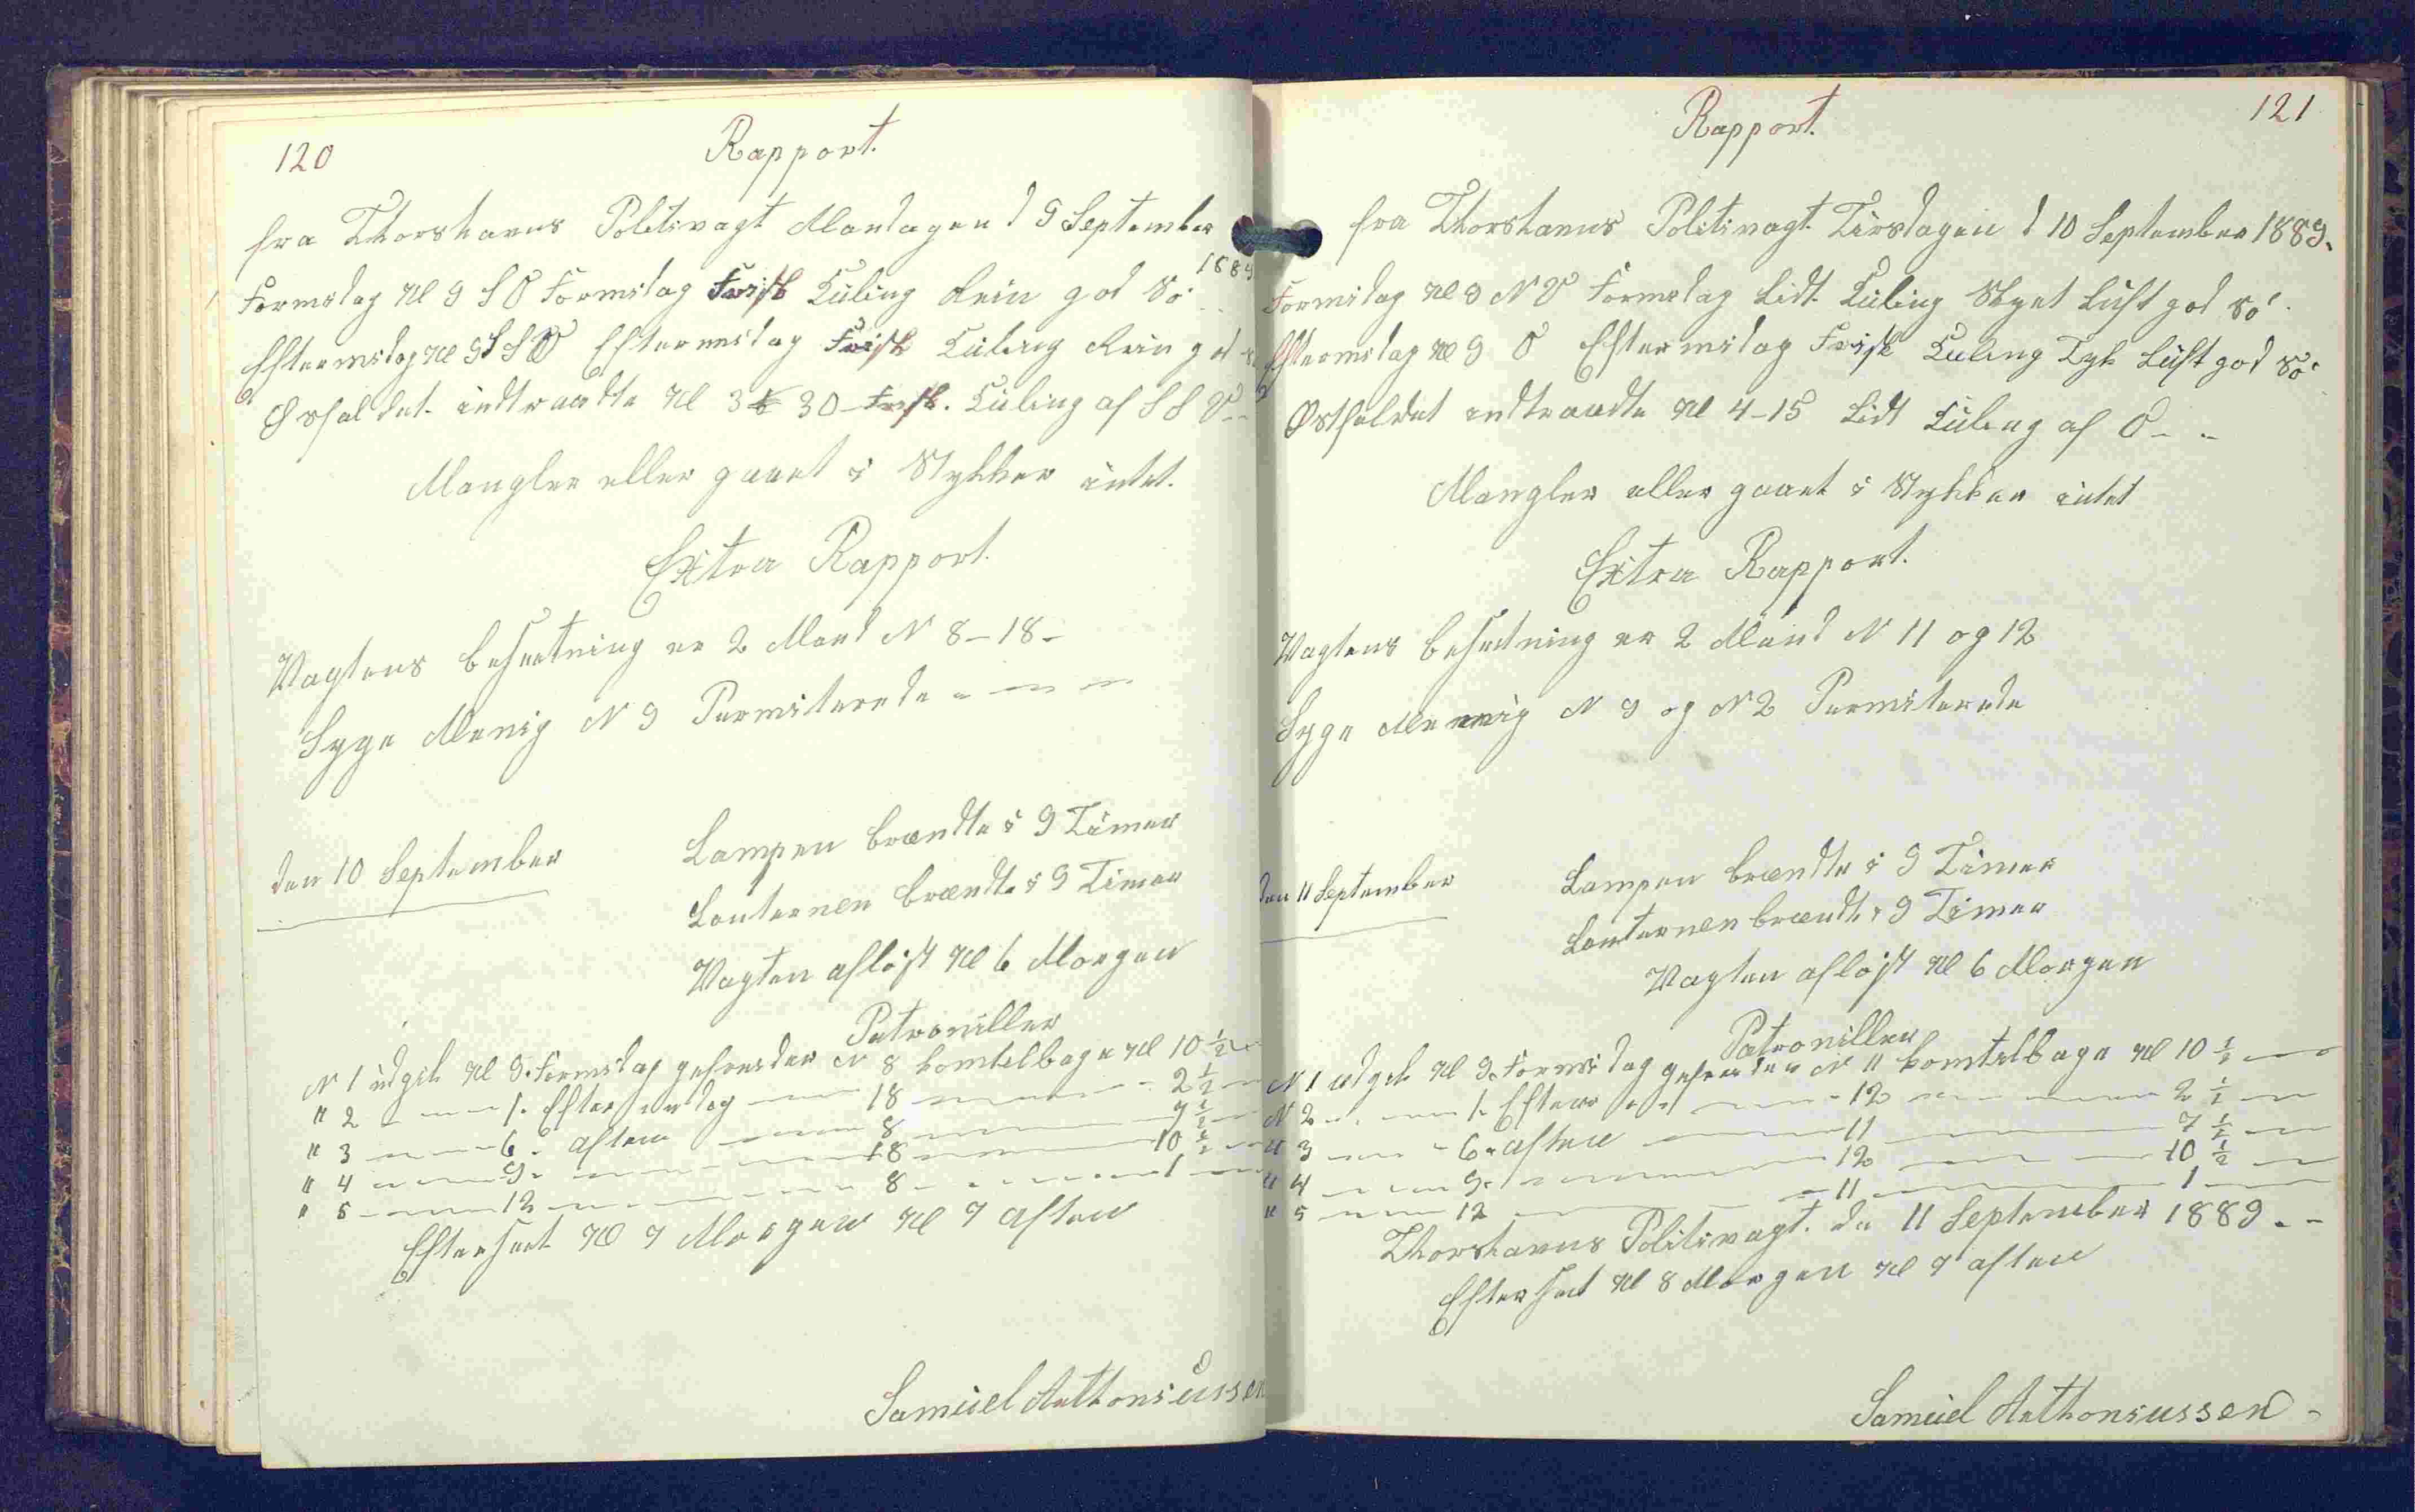 120
Rapport.
fra Thorshavns Politivagt Mandagen d 9 September
1889
Formidag Kl 9 S O Formidag Frisk Kuling Rein god Sö
Eftermidag Kl 9 S S V Eftermidag Frisk Kuling Rein god
Østfaldet indtraadte Kl 3 30 Frisk. Kuling af S S V
Mangler eller gaaet i Stykker intet.
Extra Rapport.
Vagtens besætning er 2 Mand N 8-18-
Syge Menig N 9 Permiterede
den 10 September
Lampen brændte i 9 Timer
Lanternen brændte i 9 Timer
Vagten afløst Kl 6 Morgen
Patroniller
N 1 udgik Kl 9. Formidag gefreider N 8 komtelbage Kl 10 1/2
" 2 1. Eftermidag 18 2 1/2
" 3 6. Aften 8 7 1/2
" 4 9. 18 10 1/2
" 5 12 8 1
Efterseet Kl 7 Morgen Kl 7 Aften
Samuel Anthoniussen
121
Rapport.
fra Thorshavns Politivagt Tirsdagen d 10 September 1889.
Formidag Kl 9 N V Formedag Lidt Kuling Skyet Luft god Sö
Eftermidag Kl 9 O Eftermidag Frisk Kuling Tyk Luft god Sö
Østfaldet indtraadte Kl 4-15 Lidt Kuling af O
Mangler eller gaaet i Stykker intet
Extra Rapport.
Vagtens besætning er 2 Mand N 11 og 12
Syge Mennig N 9 og N 2 Permiterede
den 11 September
Lampen brændte i 9 Timer
Lanternen brændte i 9 Timer
Vagten afløst Kl 6 Morgen
Patroniller
N 1 udgik Kl 9. Formidag gefreider N 11 komtelbage Kl 10 1/2
N 2 1. Efterm 12 2 1/2
" 3 6. Aften 11 7 1/2
" 4 9. 12 10 1/2
" 5 12 11 1
Thorshavns Politivagt. de 11 September 1889.
Efterseet Kl 8 Morgen Kl 7 Aften
Samuel Anthoniussen